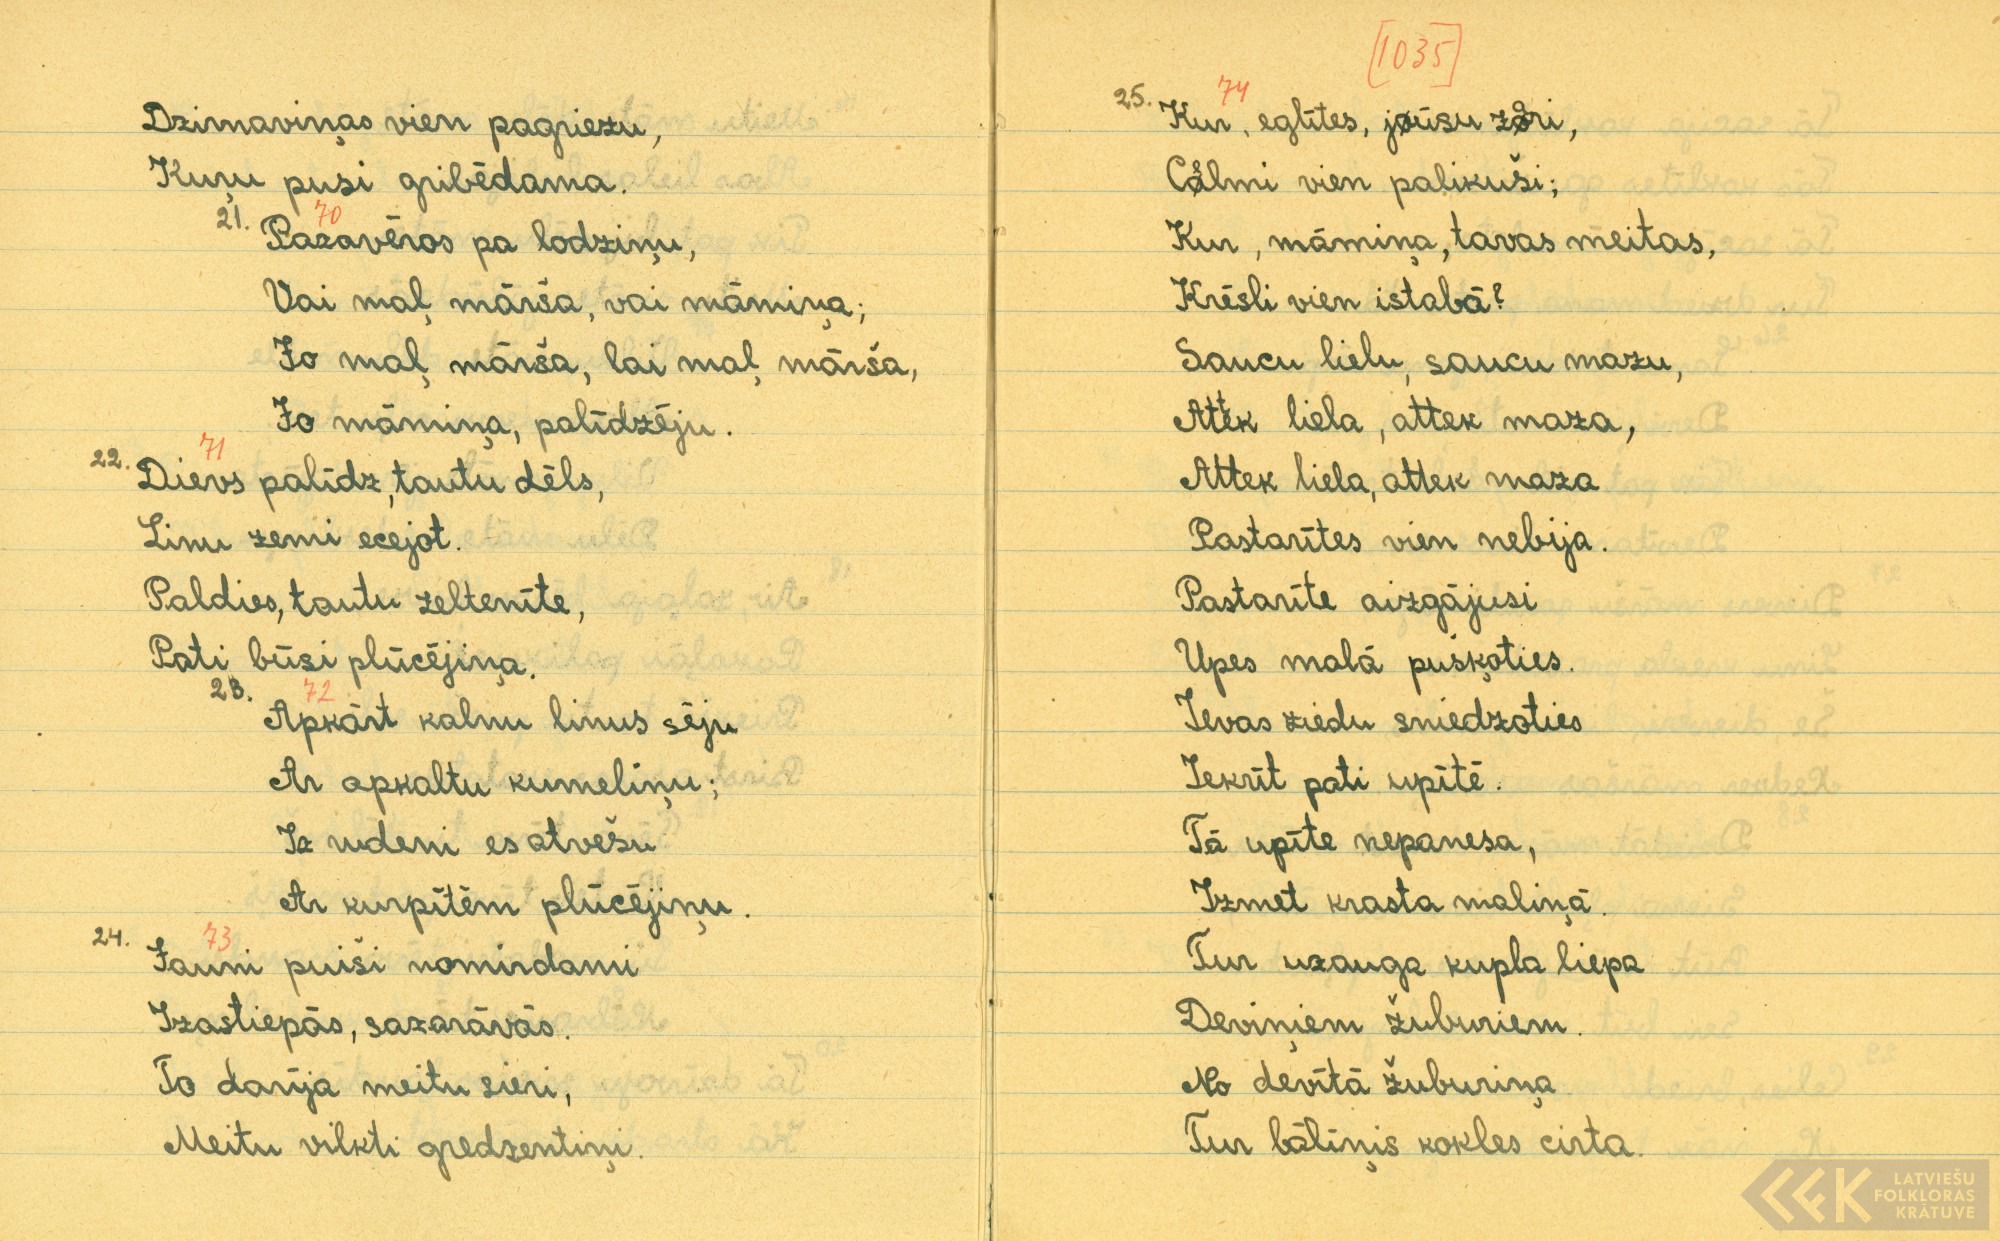 Dzirnaviņas vien pagriezu,
Kuņu pusi gribēdama.
21. 70
Pazavēros pa lodziņu,
Vai maļ mārša, vai māmiņa;
Jo maļ mārša, lai maļ mārša,
Jo māmiņa, palīdzēju.
22. 71
Dievs palīdz, tautu dēls,
Linu zemi ecejot.
Paldies, tautu zeltenīte,
Pati būsi plūcējiņa.
23. 72
Apkārt kalnu linus sēju
Ar apkaltu kumeliņu;
Iz rudeni es atvešu
Ar kurpītēm plūcējiņu.
24. 73
Jauni puiši nomirdami
Izastiepās, sazarāvās.
To darīja meitu sieri,
Meitu vilkti gredzentiņi.
[1035]
25. 74
Kur, eglītes, jūsu zari,
Calmi vien palikuši;
Kur, māmiņa, tavas meitas,
Krēsli vien istabā?
Saucu lielu, saucu mazu,
Attek liela, attek maza,
Attek liela, attek maza
Pastarītes vien nebija.
Pastarīte aizgājusi
Upes malā puškoties.
Ievas ziedu sniedzoties
Iekrīt pati upītē.
Tā upīte nepanesa,
Izmet krasta maliņā.
Tur uzauga kupla liepa
Deviņiem žuburiem.
No devītā žuburiņa
Tur bāliņis kokles cirta.
LATVIEŠU
FOLKLORAS
KRĀTUVE